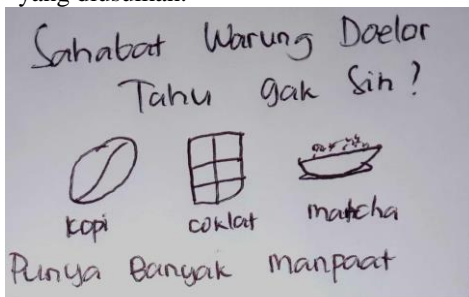 yang diusulkan.
Sahabat Warung Doelor
Tahu gak Sih ?
kopi coklat matcha
Punya Banyak manpaat